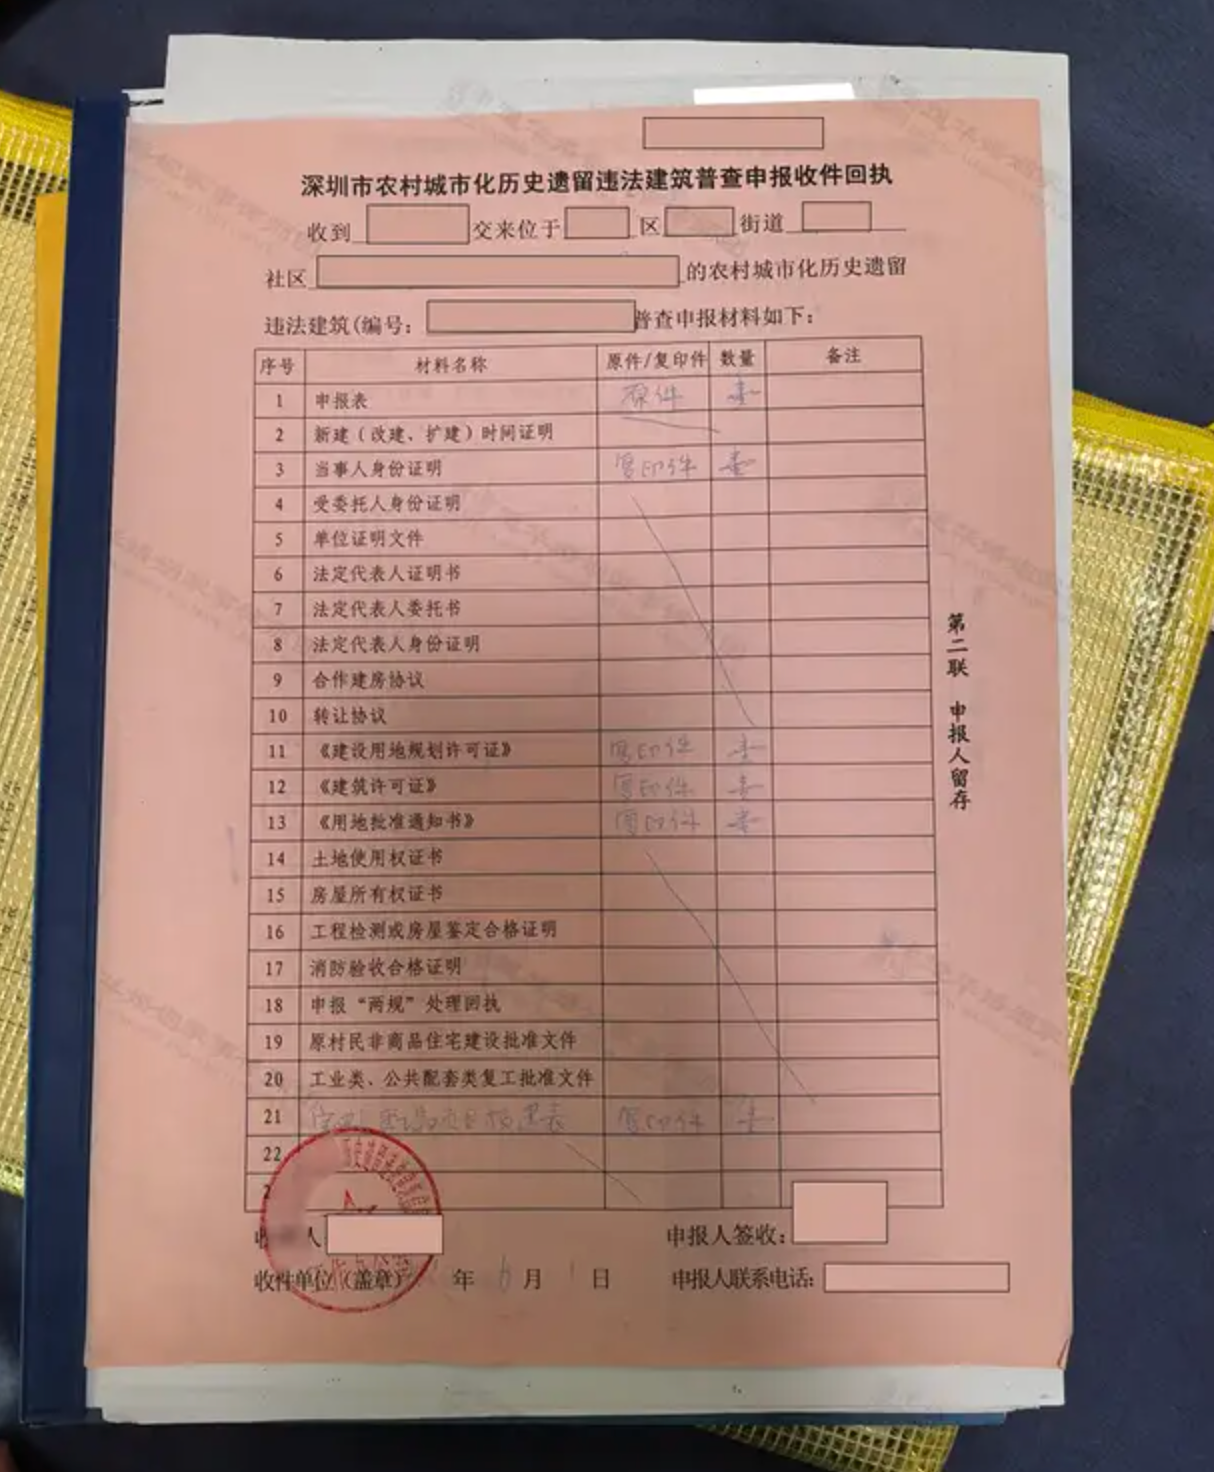 深圳市农村城市化历史遗留违法建筑普查申报收件回执
收到 交来位于 区 街道
社区 的农村城市化历史遗留
违法建筑(编号: 普查申报材料如下:
序号 材料名称 原件/复印件 数量 备注
1 申报表 原件 壹
2 新建(改建、扩建)时间证明
3 当事人身份证明 复印件 壹
4 受委托人身份证明
5 单位证明文件
6 法定代表人证明书
7 法定代表人委托书
8 法定代表人身份证明
9 合作建房协议
10 转让协议
11 《建设用地规划许可证》 复印件 壹
12 《建筑许可证》 复印件 壹
13 《用地批准通知书》 复印件 壹
14 土地使用权证书
15 房屋所有权证书
16 工程检测或房屋鉴定合格证明
17 消防验收合格证明
18 申报“两规”处理回执
19 原村民非商品住宅建设批准文件
20 工业类、公共配套类复工批准文件
21 复印件 壹
22
2
收 人 申报人签收:
收件单位(盖章) 年 月 日 申报人联系电话:
第二联 申报人留存